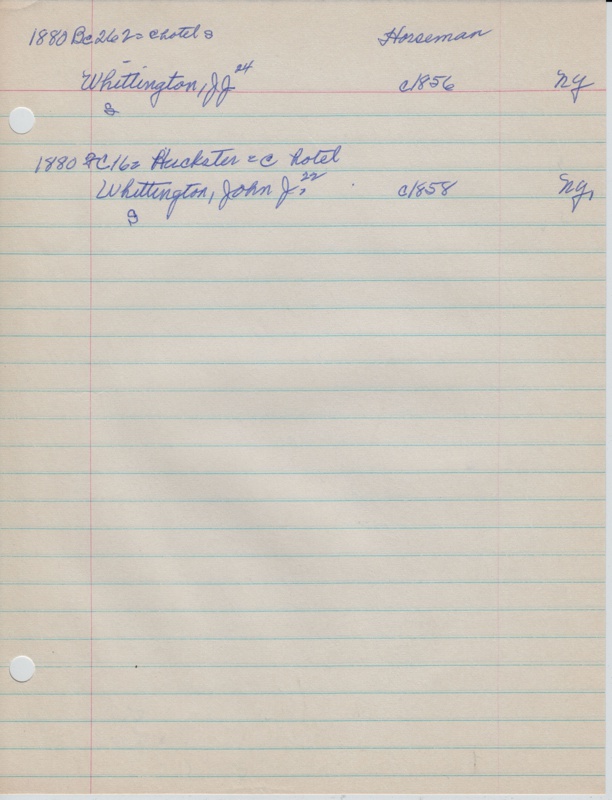 1880 Bc262= c hotel = Horseman
Whittington, J J 24 c1856 Ny
S
1880 C16= Huckster = c hotel
Whittington, John J. 22 c1858 Ny,
S